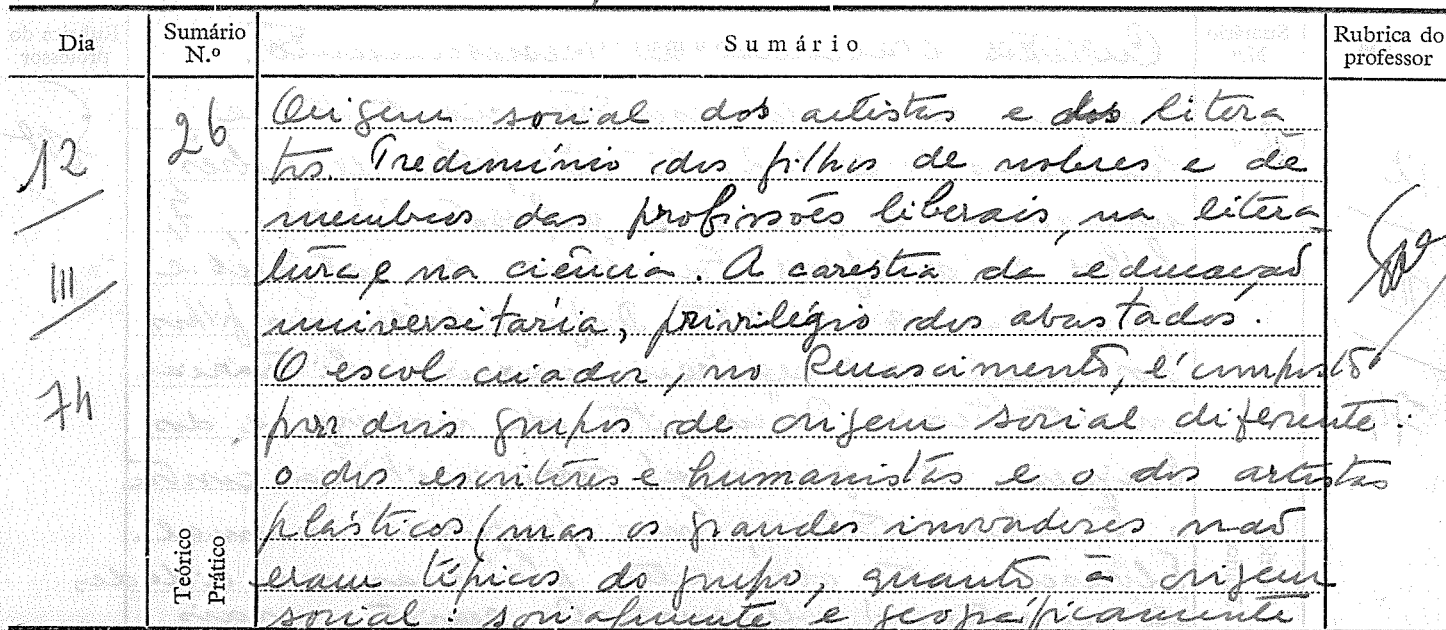 Dia
Sumário N.º
Sumário
Rubrica do professor
12
III
74
26
Origem social dos artistas e dos litera
tos. Predomínio dos filhos de nobres e de
membros das profissões liberais, na litera
tura e na ciência. A carestia da educação
universitária, privilégio dos abastados.
O escol criador, no Renascimento, é composto
por dois grupos de origem social diferente:
o dos escritores e humanistas e o dos artistas
plásticos (mas os grandes inovadores não
eram típicos do grupo, quanto à origem
social: socialmente e geogràficamente
Teórico
Prático